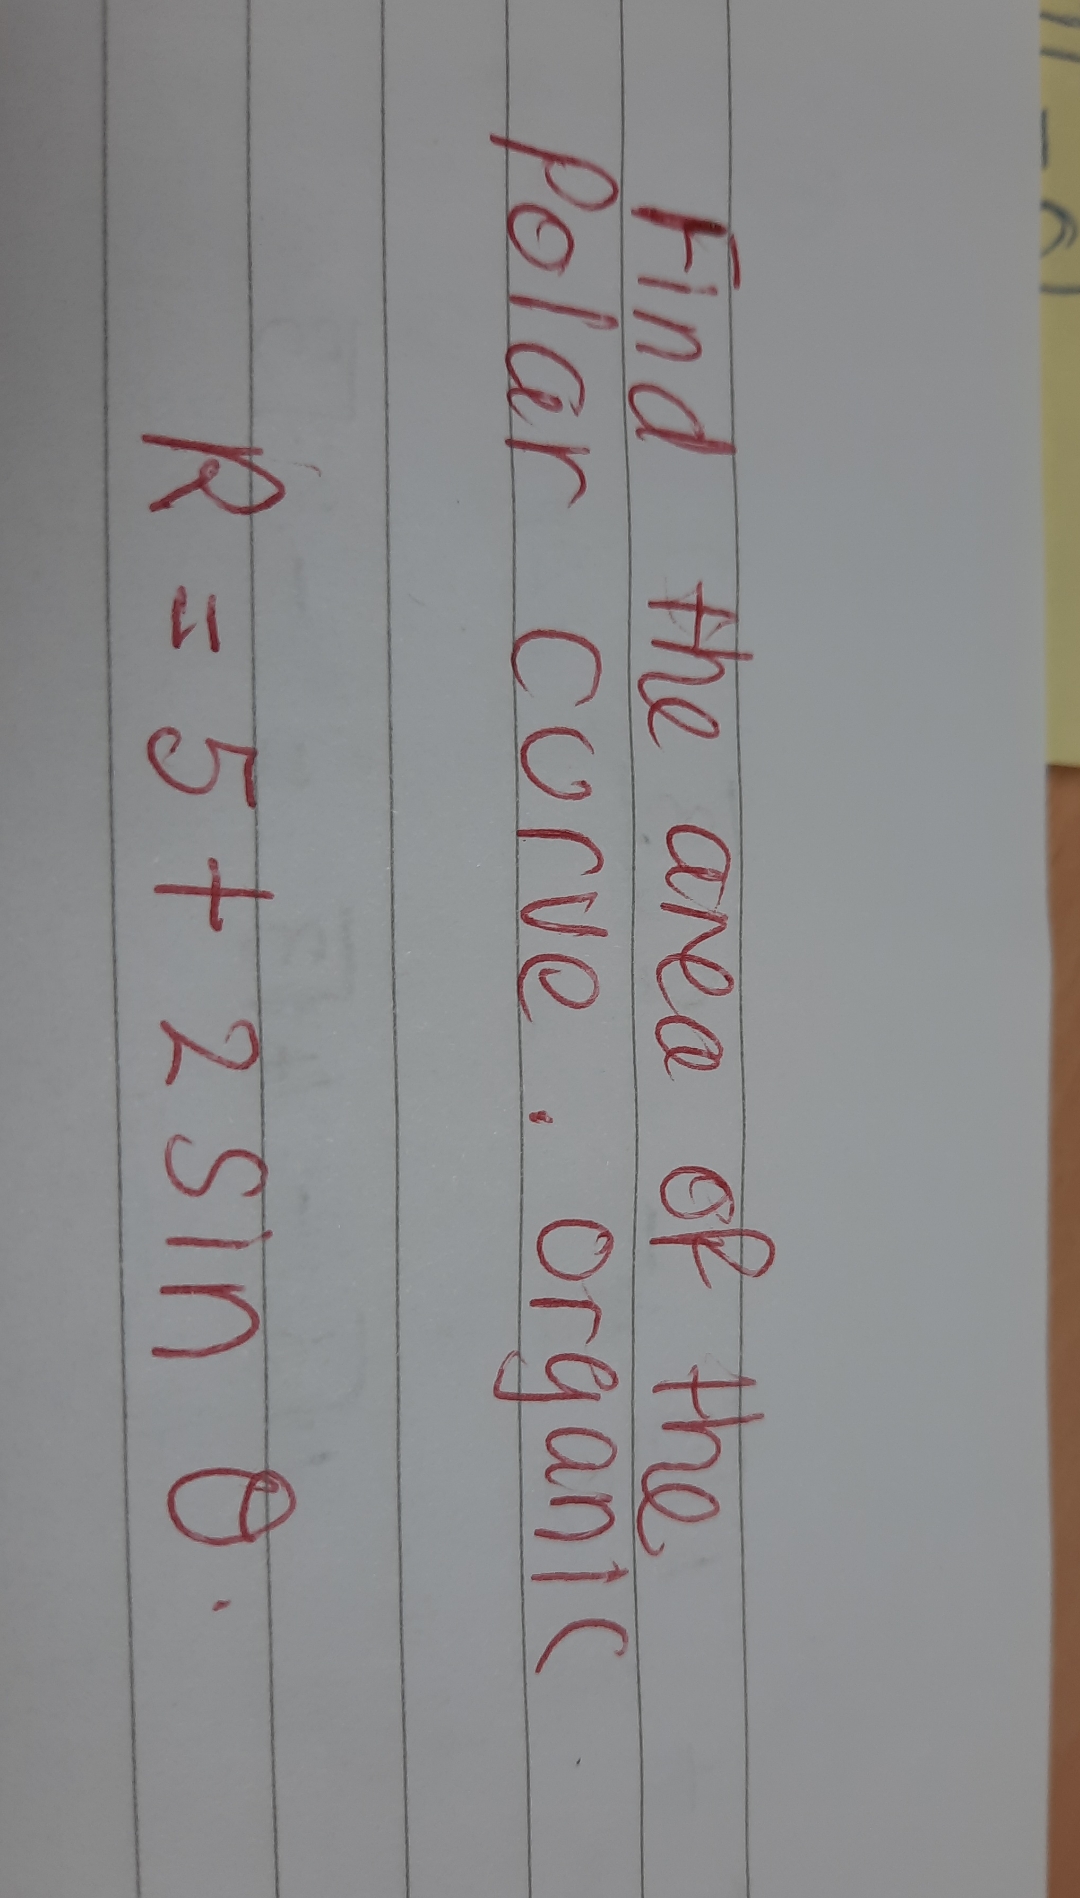 Find the area of the
polar curve. organic
R = 5 + 2 sin θ.